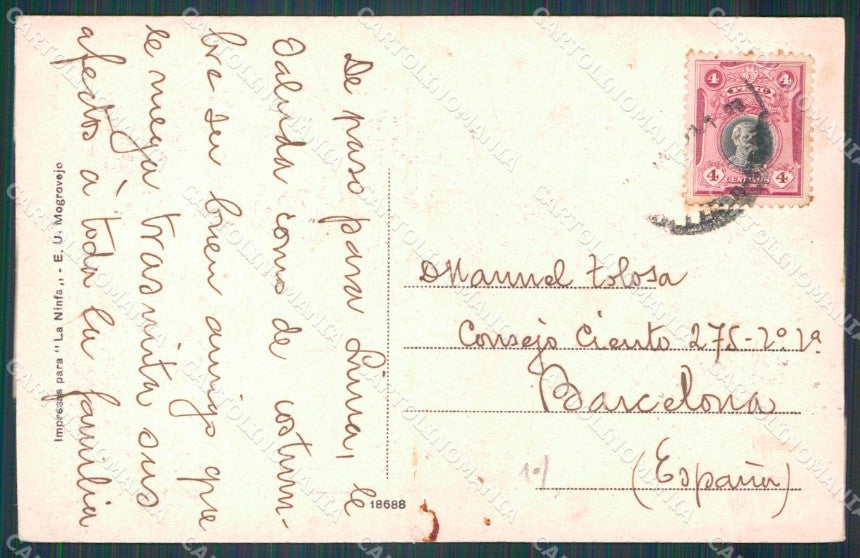 De paso para Lima, le
saluda como de costum-
bre su buen amigo que
le ruega trasmita sus
afectos á toda la familia
Impresas para "La Ninfa,, - E. U. Mogrovejo
18688
4 4
PERU
4 4
D Manuel Tolosa
Consejo Ciento 275-2º.2ª
Barcelona
(España)
CARTOLINOMANIA